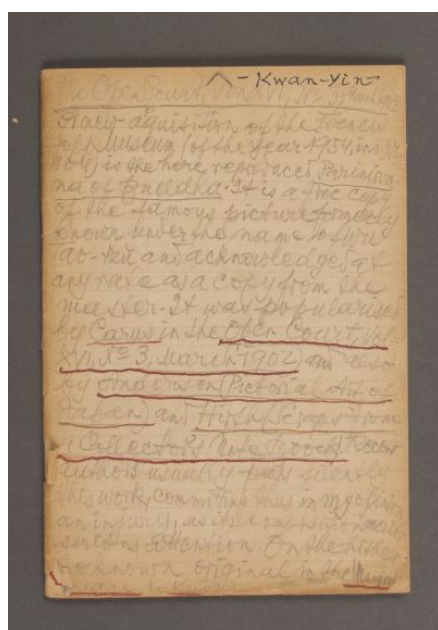 - Kwan-Yin-
The Open Court, Vol XVI, No 3, March 1902
A new aquisition of the
Museum (of the year
is the here reproduced Parinirva-
na of Buddha. It is a free copy
of the famous picture formerly
known under the name of Wu
tao-tzu and acknowledged at
any rate as a copy from the
master. It was popularised
by Carus in the Open Court, Vol
XVI, No 3, March 1902) and also
by Anderson (Pictorial Art of
Japan) and Hirth (Scraps from
a Collector's Note Book). Recent
authors usually pass silently
this work, commiting thus in my opinion
an injury, as its composition
serious attention. On the
no known original in the